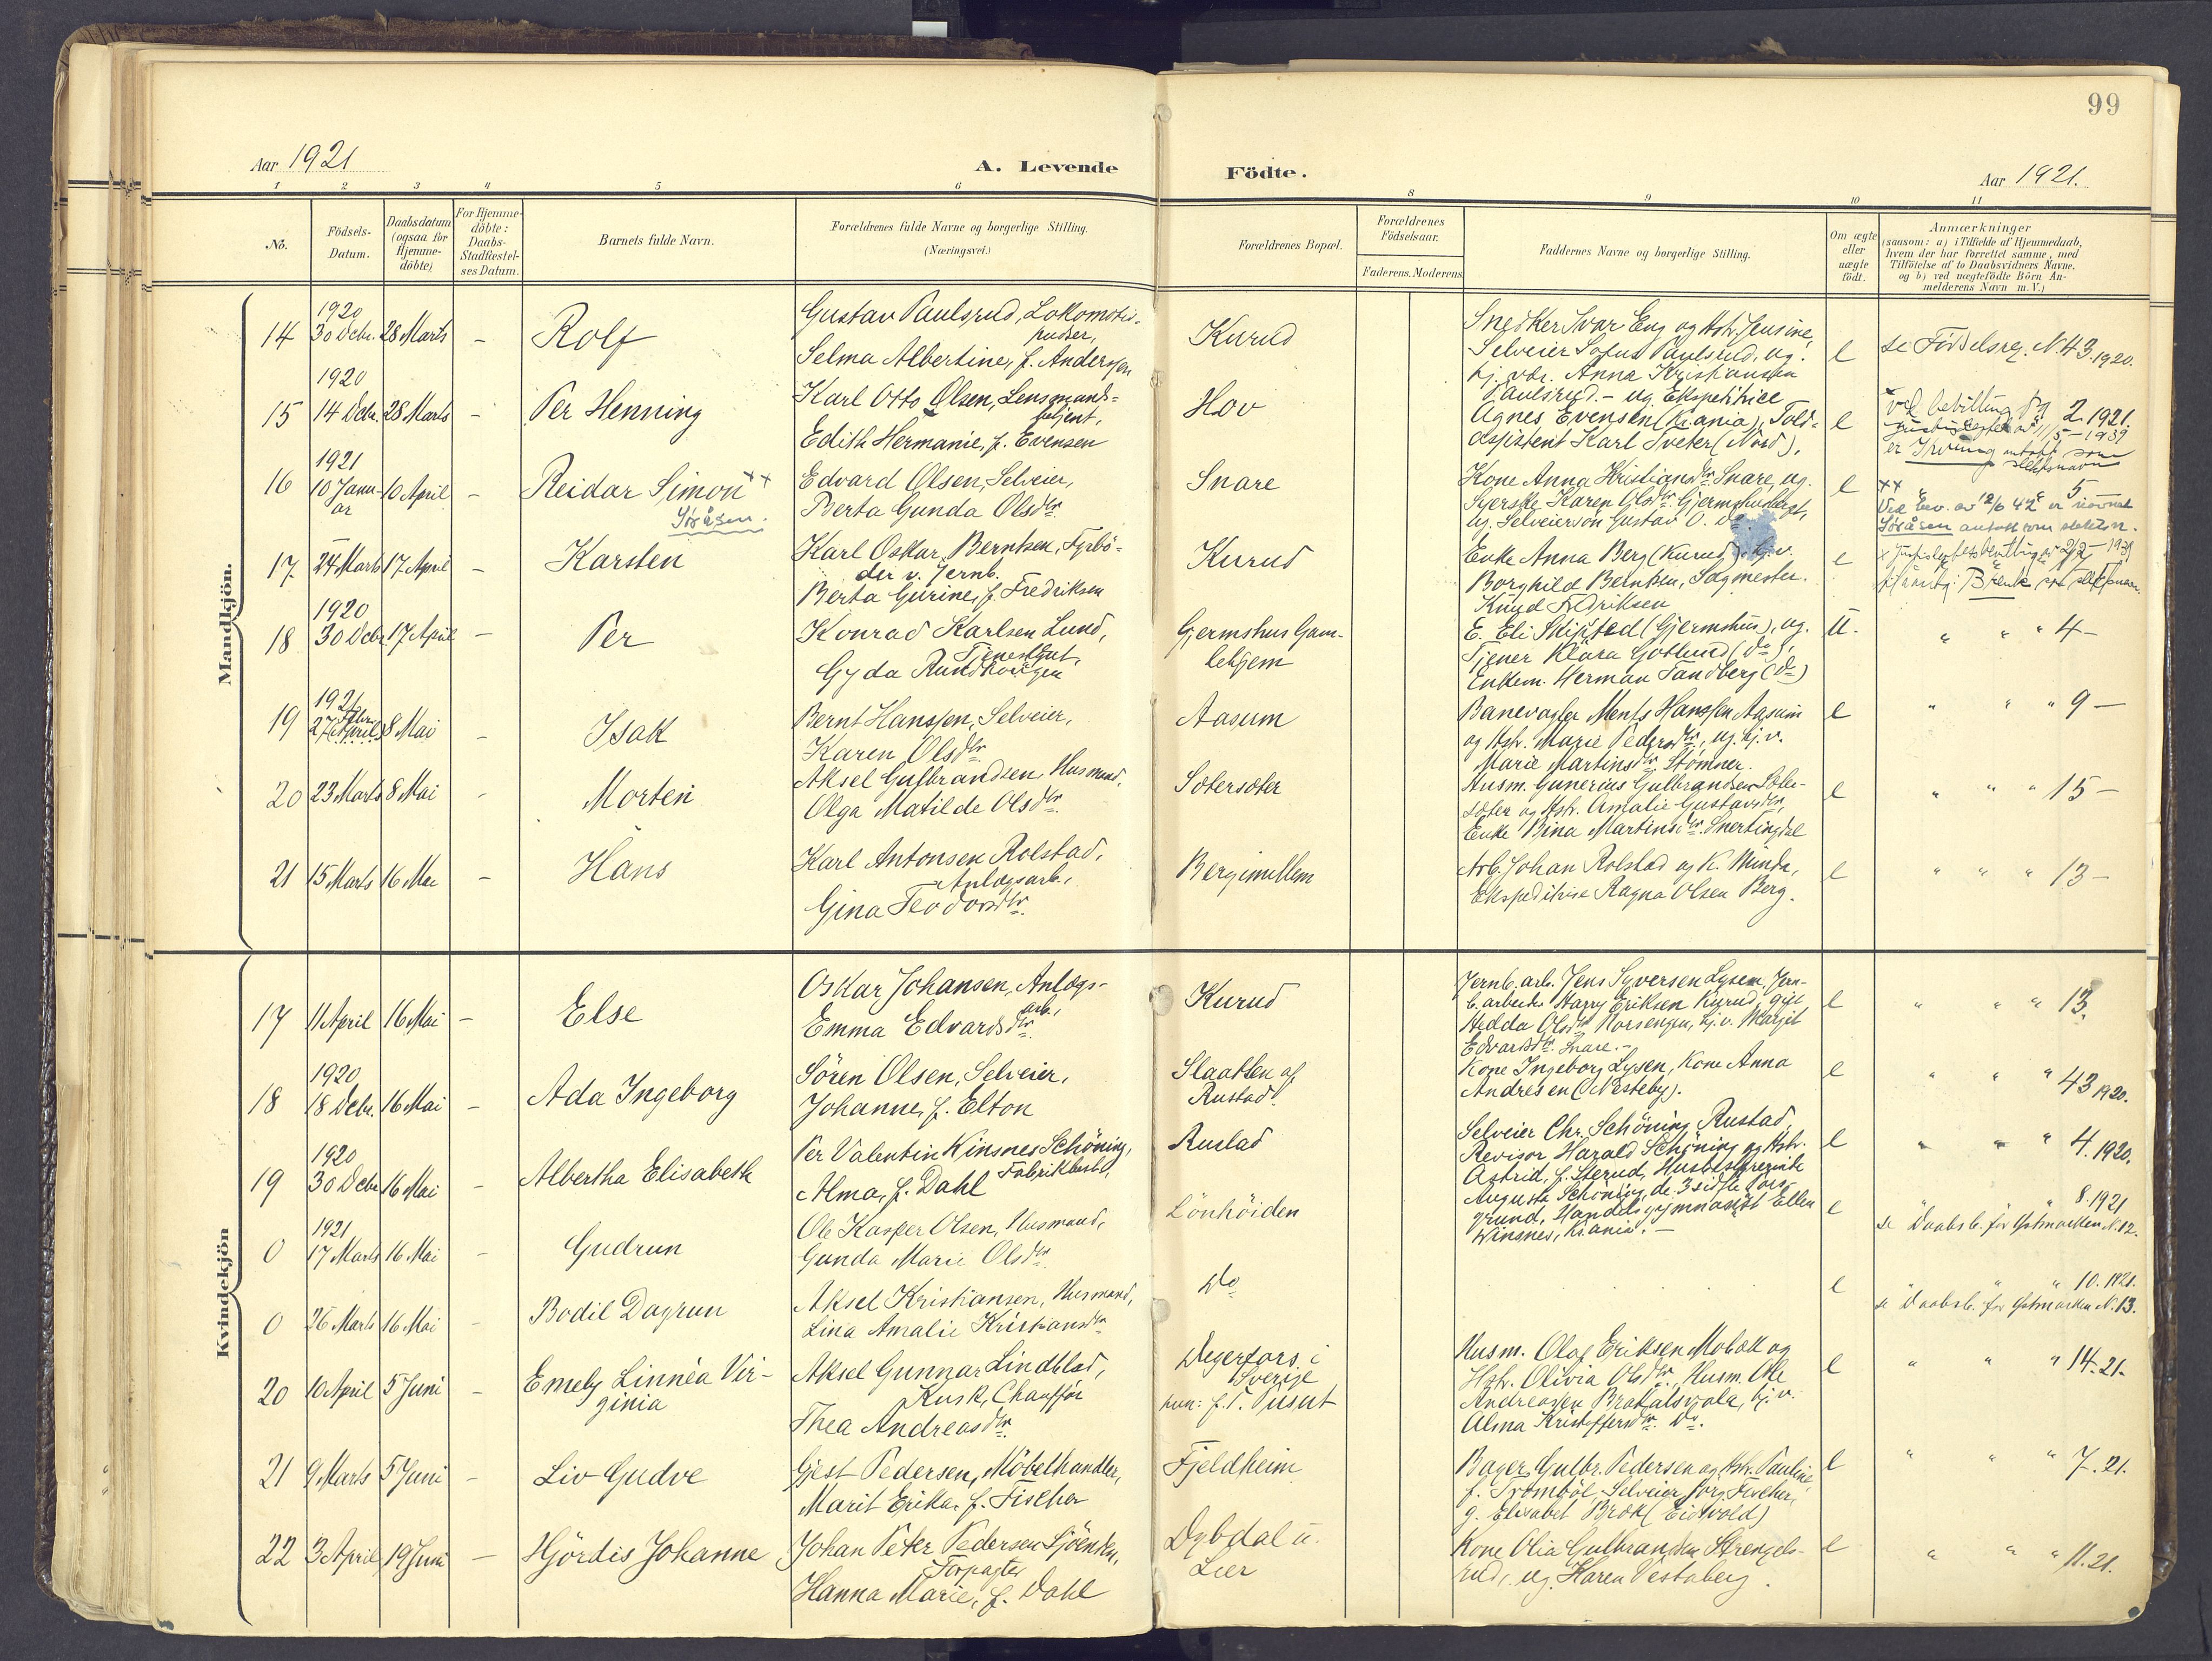 99
Aar 1921
A. Levende
Födte.
Aar 1921.
1 2 3 4 5 6 8 9 10 11
No.
Födsels-
Datum.
Daabsdatum
(ogsaa for
Hjemme-
döbte)
For Hjemme-
döbte:
Daabs-
Stadfæstel-
ses Datum.
Barnets fulde Navn.
Forældrenes fulde Navne og borgerlige Stilling.
(Næringsvei.)
Forældrenes Bopæl.
Forældrenes
Födselsaar.
Faderens. Moderens.
Faddernes Navne og borgerlige Stilling.
Om ægte
eller
uægte
födt.
Anmærkninger
(saasom: a) i Tilfælde af Hjemmedaab,
hvem der har forrettet samme, med
Tilföielse af to Daabsvidners Navne,
og b) ved uægtefödte Börn An-
melderens Navn m. V.)
Mandkjön.
14
1920
30 Debr.
28 Marts
-
Rolf
Gustav Paulsrud, Lokomotiv-
pudser,
Selma Albertine, f. Anderssen
Kurud
Snedker Ivar Eng og Hstr. Jensine,
Selveier Sofus Paulsrud, ug.
kj. vdr. Anna Kristiansen
Paulsrud. - ug. Ekspeditrice
e
se Födselsreg. N. 43. 1920.
15
1920
14 Debr.
28 Marts
-
Per Henning
Karl Otto Olsen, Lensmands-
betjent,
Edith Hermanie, f. Evensen
Hov
Agnes Evensen (Kr.ania), Told-
assistent Karl Sveter (Nord),
e
2. 1921.
Ved bevilling fra
11/5 - 1939
er Irving antatt som
slektsnavn
16
1921
10 Janu-
ar
10 April
-
Reidar Simon ××
Söråsen.
Edvard Olsen, Selveier,
Berta Gunda Olsdtr.
Snare
Kone Anna Kristiansdtr. Snare, ug.
Syerske Karen Olsdtr. Gjermshusbergt,
ug. Selveiersön Gustav O. do.
e
" 5
×× Ved bev. av 12/6 42 er navnet
Söråsen antatt som slektsn.
17.
24 Marts
17. April
-
Karsten
Karl Oskar Berntsen, Fyrbö-
der v. Jernb.
Berta Gurine, f. Fredriksen
Kurud
Enke Anna Berg (Kurud), kj. v.
Borghild Berntsen, Sagmester
Knud Fredriksen
e
× Justisdeptets bevilling av 2/2 - 1939
Brenk som slektsnavn.
18
1920
30 Debr.
17 April
-
Per
Konrad Karlsen Lund,
Tjenestgut,
Gyda Rundhaugen
Gjermshus Gam-
lehjem
E. Eli Skifsted (Gjermshus), ug.
Tjener Klara Gotlund (do),
Enkem. Herman Tandberg (do)
U.
" " " 4 -
19
1921
Febr.
27 April
8 Mai
-
Isak
Bernt Hanssen, Selveier,
Karen Olsdtr.
Aasum
Banevogter Ments Hanssen Aasum
og Hstr. Marie Pedersdtr., ug. kj. v.
Marie Martinsdtr. Stömner.
e
" " " 9 -
20
23 Marts
8 Mai
-
Morten
Aksel Gulbrandsen, Husmand,
Olga Matilde Olsdtr.
Sætersæter
Husm. Gunerius Gulbrandsen Sæter-
sæter og Hstr. Amalie Gustavsdtr.,
Enke Bina Martinsdtr. Snertingdal
e
" " " 15 -
21
15 Marts
16 Mai
-
Hans
Karl Antonsen Rolstad,
Anlægsarb.,
Gina Teodorsdtr.
Bergimellem
Arb. Johan Rolstad og K. Minda,
Ekspeditrise Ragna Olsen Berg.
e
" " " 13 -
Kvindekjön
17
11 April
16 Mai
-
Else
Oskar Johansen, Anlægs-
arb.,
Emma Edvardsdtr.
Kurud
Jernb. arb. Jens Syversen Lysem, Jern-
b. arbeider Harry Eriksen Kurud, gift
Hedda Olsdtr. Norsengen, kj. v. Margit
Edvardsdtr. Snare. -
e
" " " 13.
18
1920
18 Debr.
16 Mai
-
Ada Ingeborg
Sören Olsen, Selveier,
Johanne, f. Elton
Slaatten af
Rustad.
Kone Ingeborg Lysen, Kone Anna
Andresen (Nesteby).
e
" " " 43 1920.
19
1920
30 Debr.
16 Mai
-
Albertha Elisabeth
Per Valentin Winsnes Schöning,
Fabrikbest.,
Alma, f. Dahl
Rustad
Selveier Chr. Schöning, Rustad,
Revisor Harald Schöning og Hstr.
Astrid, f. Sterud, Husbestyrerinde
Augusta Schöning, de 3 sidste Pors-
grund, Handelsgymnasist Ellen
Winsnes, Kr.ania. -
e
" " " 4. 1920.
0
1921
17 Marts
16 Mai
-
Gudrun
Ole Kasper Olsen, Husmand,
Gunda Marie Olsdtr.
Lönhöiden
e
" " " 8. 1921
se Daabsb. for Östmarken N. 12.
0
26 Marts
16 Mai
-
Bodil Dagrun
Aksel Kristiansen, Husmand,
Lina Amalie Kristiansdtr.
Do
e
" " " 10. 1921.
se Daabsb. for Östmarken N. 13.
20
10 April
5 Juni
-
Emely Linnèa Vir-
ginia
Aksel Gunnar Lindblad,
Kusk, Chaufför
Thea Andreasdtr.
Degerfors i
Sverige
hun: f. T. Pusut
Husm. Olaf Eriksen Mobæk og
Hstr. Olivia Olsdtr., Husm. Ole
Andreassen Brataasvola, kj. v.
Alma Kristoffersdtr. Do.
e
" " " 14. 21.
21
9 Marts
5 Juni
-
Liv Gudve
Gjest Pedersen, Möbelhandler,
Marit Erika, f. Fischer
Fjeldheim
Bager Gulbr. Pedersen og Hstr. Pauline,
f. Tromböl, Selveier Jörg. Fischer,
g. Elisabet Bræk (Eidsvold)
e
" " " 7. 21.
22
3 April
19 Juni
-
Hjördis Johanne
Johan Peter Pedersen Sjöenden,
Forpagter
Hanna Marie, f. Dahl
Dybdal u.
Lier
Kone Olia Gulbrandsen Strengels-
rud, ug. Karen Vestaberg.
e
" " " 11. 21.